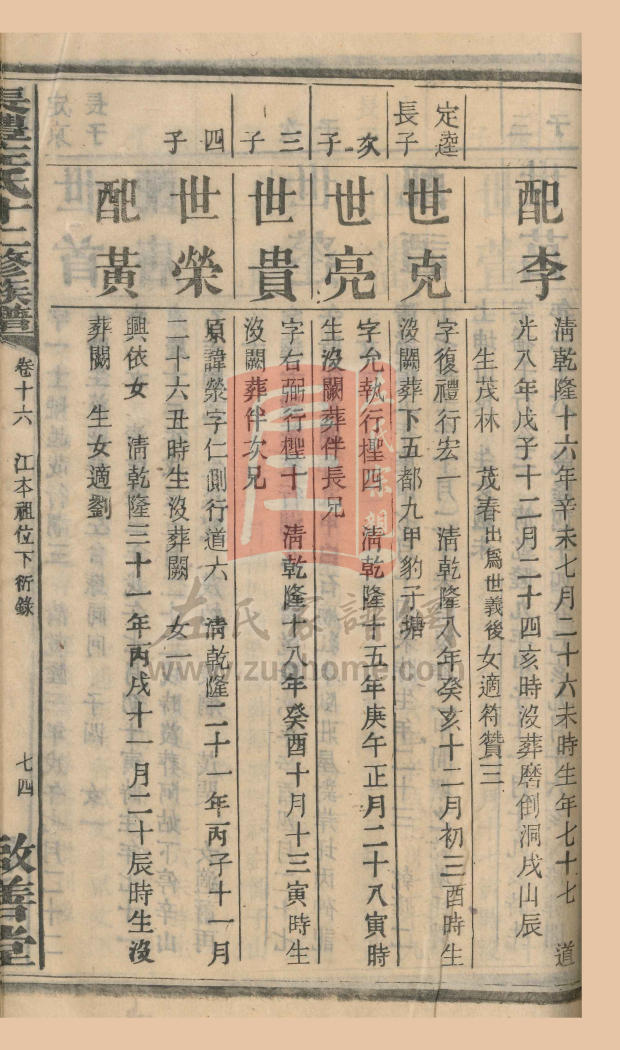 配李
清乾隆十六年辛未七月二十六未時生年七十七 道
光八年戊子十二月二十四亥時沒葬磨倒洞戌山辰
生茂林 茂春出爲世義後女適符贊三
定逵
長子
世克
字復禮行宏一 清乾隆八年癸亥十二月初三酉時生
沒闕葬下五都九甲豹子塘
次子
世亮
字允執行檉四 清乾隆十五年庚午正月二十八寅時
生沒闕葬伴長兄
三子
世貴
字右弼行檉十 清乾隆十八年癸酉十月十三寅時生
沒闕葬伴次兄
四子
世榮
原諱滎字仁側行道六 清乾隆二十一年丙子十一月
二十六丑時生沒葬闕 女一
配黃
興依女 清乾隆三十一年丙戌十一月二十辰時生沒
葬闕 生女適劉
氏十二修族譜
卷十六 江本祖位下衍錄
七四
啟善堂
左氏家譜網
www.zuohome.com